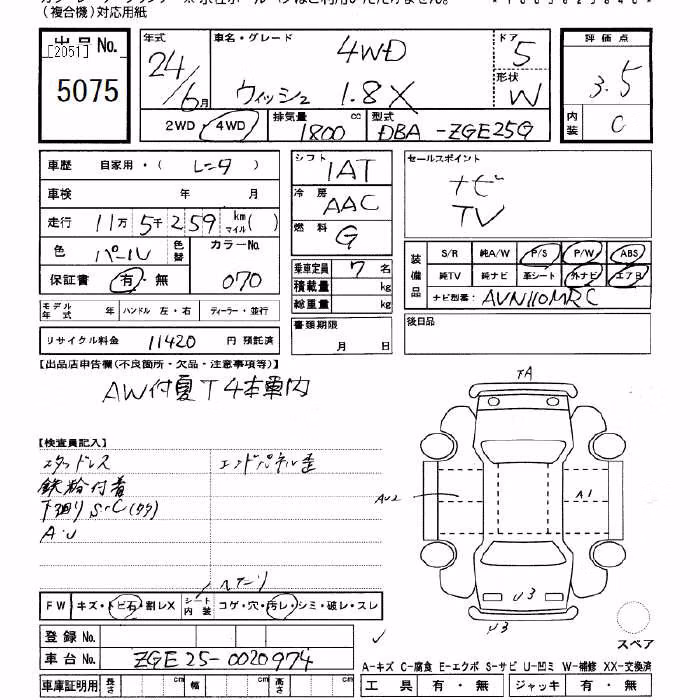 (複合機)対応用紙
出品No.
[2051]
5075
年式
24/6月
車名・グレード
4WD
ウィッシュ 1.8X
ドア
5
形状
W
評価点
3.5
内装
C
2WD・4WD
排気量
1800
cc
型式
DBA-ZGE25G
車歴 自家用・(レンタ)
車検 年 月
走行 11万5千259 km マイル( )
色 パール 色替
カラーNo.
070
保証書 有・無
シフト
IAT
冷房
AAC
燃料
G
乗車定員 7名
積載量 kg
総重量 kg
セールスポイント
ナビ
TV
装備品
S/R 純A/W P/S P/W ABS
純TV 純ナビ 革シート 外ナビ エアB
ナビ型番: AVN110MRC
モデル年式 年 ハンドル 左・右 ディーラー・並行
リサイクル料金 11420 円 預託済
書類期限
月 日
後日品
【出品店申告欄(不良箇所・欠品・注意事項等)】
AW付夏T4本車内
【検査員記入】
スタッドレス
エンドパネル歪
鉄粉付着
下廻りS・C(クク)
A・U
FW キズ・トビ石・割レX
シート内装 コゲ・穴・汚レ・シミ・破レ・スレ
ヘタリ
TA
AU2
A1
U3
U3
スペア
登録No.
車台No. ZGE25-0020974
A-キズ C-腐食 E-エクボ S-サビ U-凹ミ W-補修 XX-交換済
車庫証明用 長さ cm 幅 cm 高さ cm
工具 有・無 ジャッキ 有・無